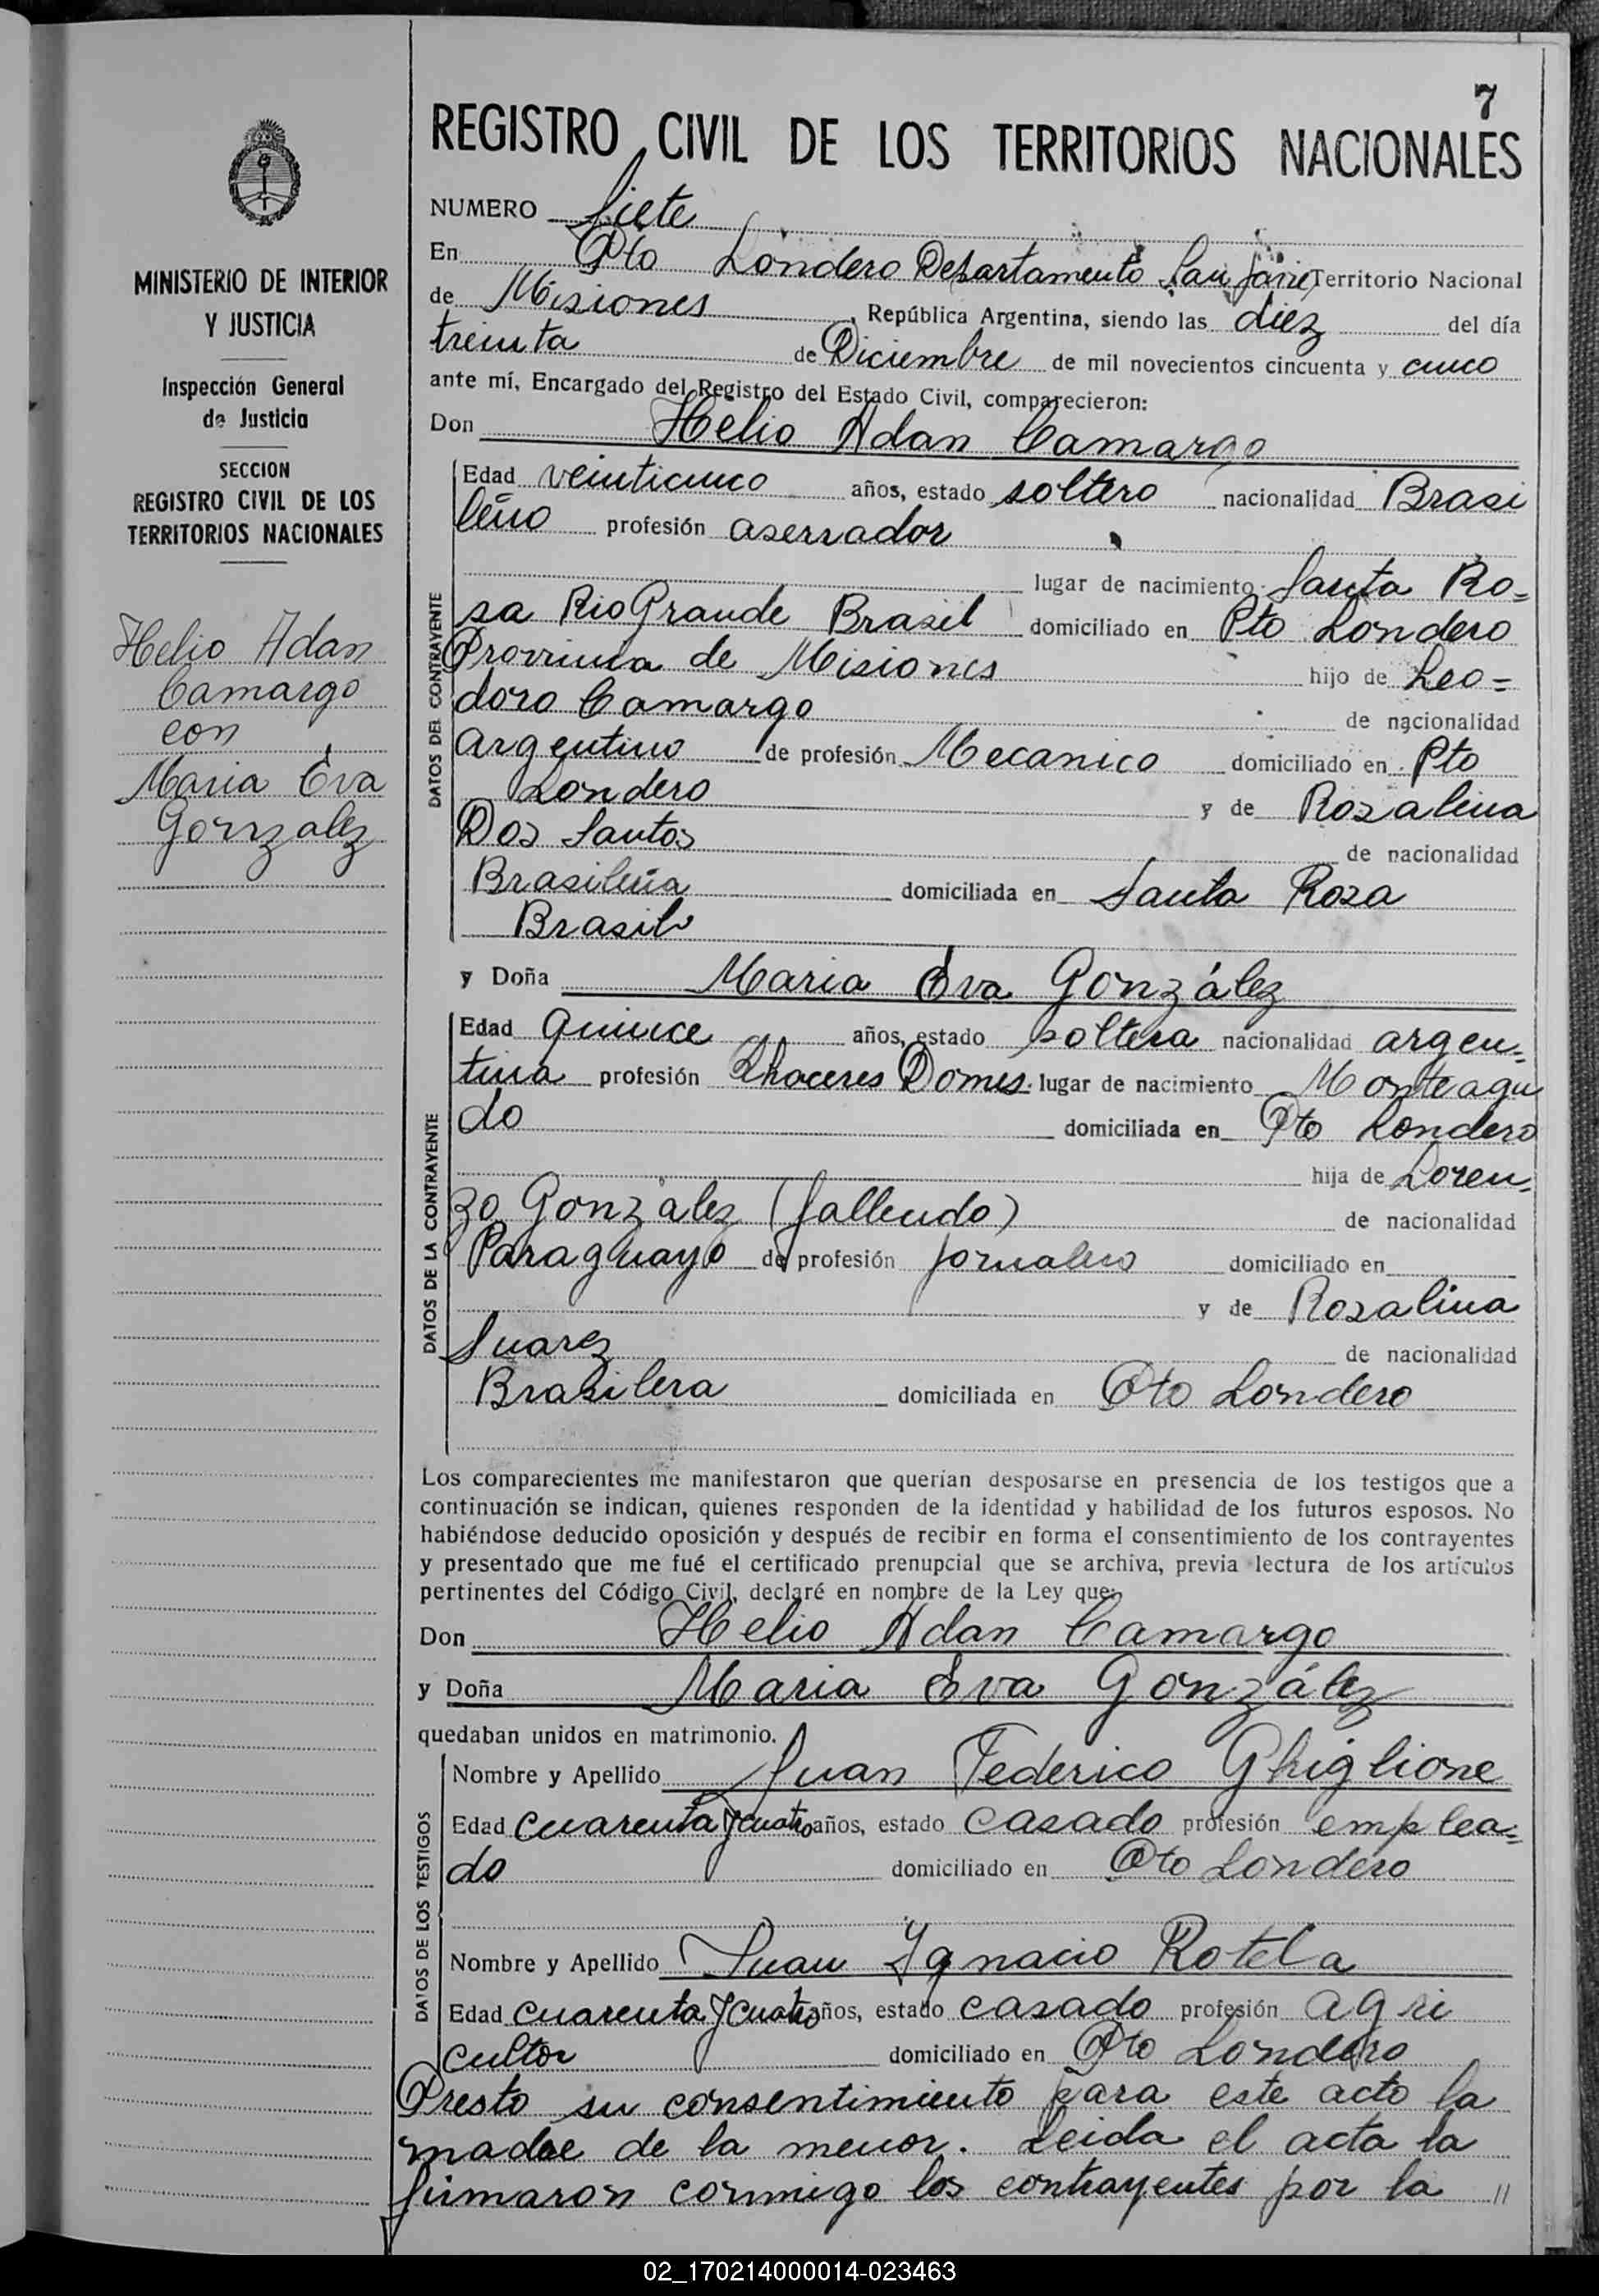 7
REGISTRO CIVIL DE LOS TERRITORIOS NACIONALES
MINISTERIO DE INTERIOR
Y JUSTICIA
Inspección General
de Justicia
SECCION
REGISTRO CIVIL DE LOS
TERRITORIOS NACIONALES
Helio Adan
Camargo
con
Maria Eva
Gonzalez
NUMERO Siete
En Pto Londero Departamento San Javier Territorio Nacional
de Misiones, República Argentina, siendo las diez del día
treinta de Diciembre de mil novecientos cincuenta y cinco
ante mí, Encargado del Registro del Estado Civil, comparecieron:
Don Helio Adan Camargo
DATOS DEL CONTRAYENTE
Edad veinticinco años, estado soltero nacionalidad Brasi
leño profesión aserrador
lugar de nacimiento Santa Ro=
sa Rio Grande Brasil domiciliado en Pto Londero
Provincia de Misiones hijo de Leo=
doro Camargo de nacionalidad
argentino de profesión Mecanico domiciliado en Pto
Londero y de Rosalina
Dos Santos de nacionalidad
Brasileña domiciliada en Santa Rosa
Brasil
y Doña Maria Eva González
DATOS DE LA CONTRAYENTE
Edad Quince años, estado soltera nacionalidad argen=
tina profesión Qhaceres Domes. lugar de nacimiento Monteagu
do domiciliada en Pto Londero
hija de Loren=
zo González (fallecido) de nacionalidad
Paraguayo de profesión jornalero domiciliado en
y de Rosalina
Suarez de nacionalidad
Brasilera domiciliada en Pto Londero
Los comparecientes me manifestaron que querían desposarse en presencia de los testigos que a
continuación se indican, quienes responden de la identidad y habilidad de los futuros esposos. No
habiéndose deducido oposición y después de recibir en forma el consentimiento de los contrayentes
y presentado que me fué el certificado prenupcial que se archiva, previa lectura de los artículos
pertinentes del Código Civil, declaré en nombre de la Ley que:
Don Helio Adan Camargo
y Doña Maria Eva González
quedaban unidos en matrimonio.
DATOS DE LOS TESTIGOS
Nombre y Apellido Juan Federico Ghiglione
Edad cuarenta y cuatro años, estado casado profesión emplea=
do domiciliado en Pto Londero
Nombre y Apellido Juan Ygnacio Rotela
Edad cuarenta y cuatro años, estado casado profesión agri
cultor domiciliado en Pto Londero
Presto su consentimiento para este acto la
madre de la menor. Leida el acta la
firmaron conmigo los contrayentes por la //
02_170214000014-023463